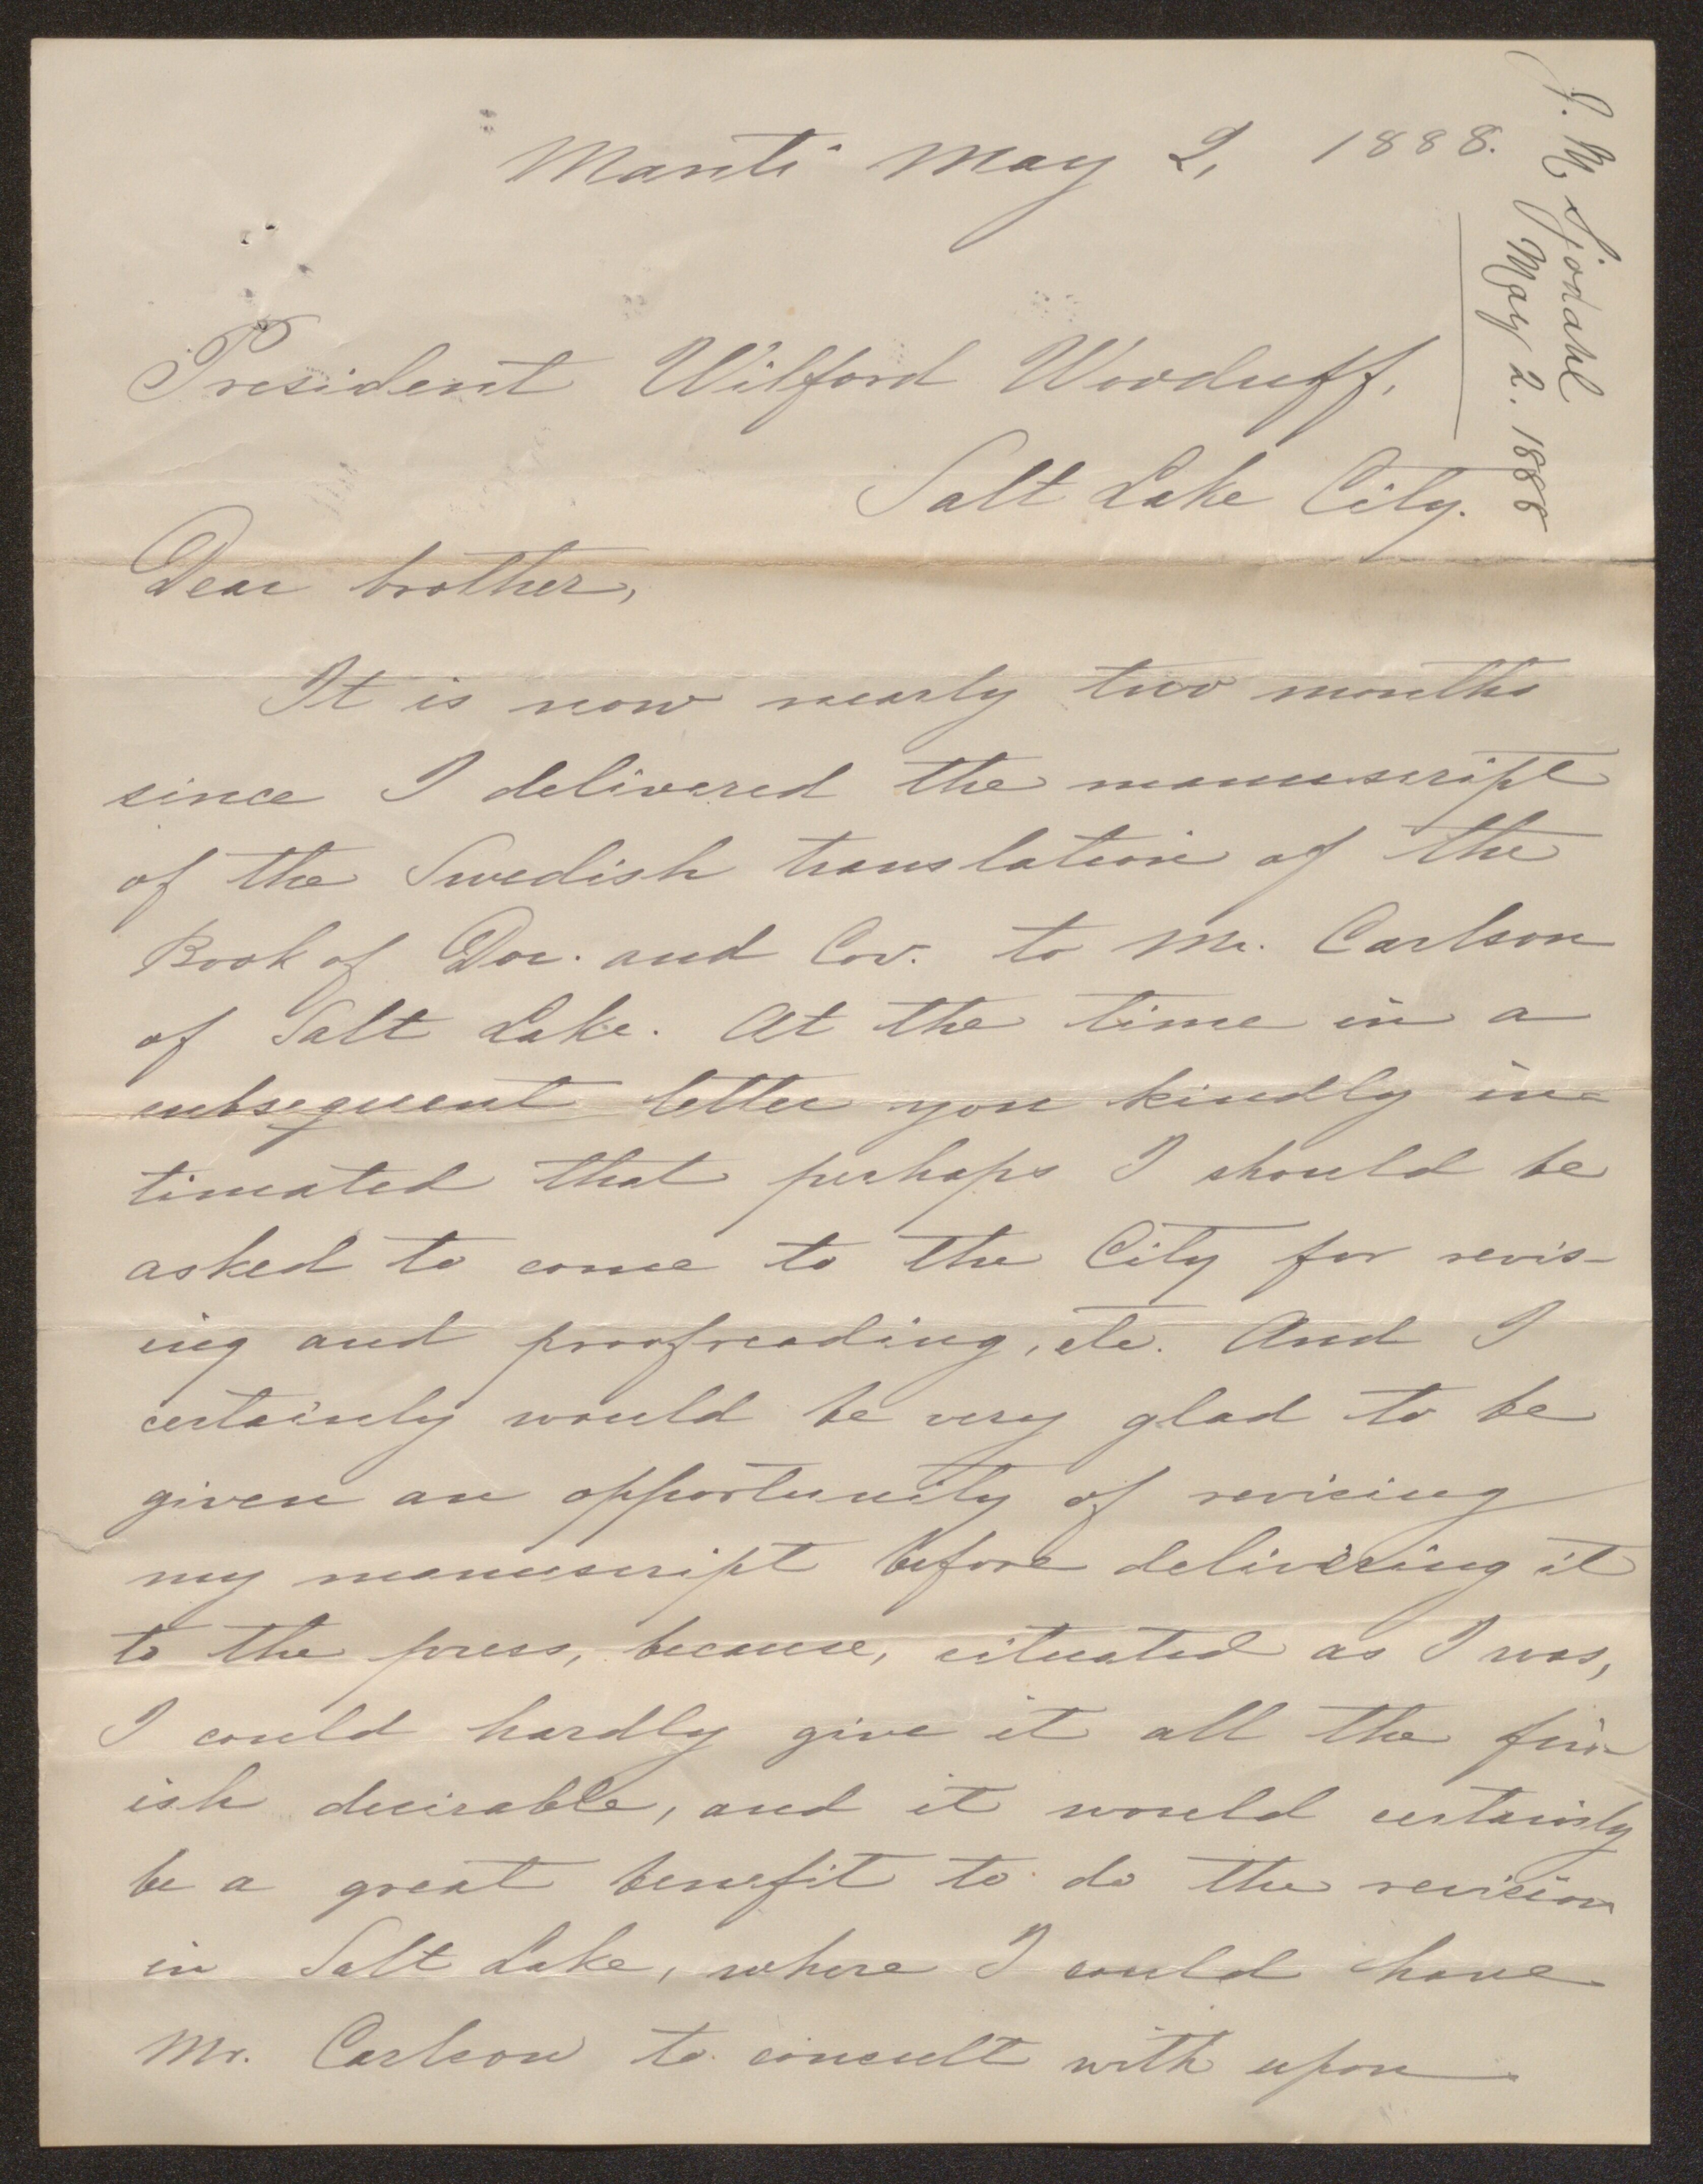 J. M. Sjodahl
May 2. 1888
Manti May 2, 1888.
President Wilford Woodruff,
Salt Lake City.
Dear brother,
It is now nearly two months
since I delivered the manuscript
of the Swedish translation of the
Book of Doc. and Cov. to Mr. Carlson
of Salt Lake. At the time in a
subsequent letter you kindly in-
timated that perhaps I should be
asked to come to the City for revis-
ing and proofreading, etc. And I
certainly would be very glad to be
given an opportunity of revising
my manuscript before delivering it
to the press, because, situated as I was,
I could hardly give it all the fin-
ish desirable, and it would certainly
be a great benefit to do the revision
in Salt Lake, where I could have
Mr. Carlson to consult with upon